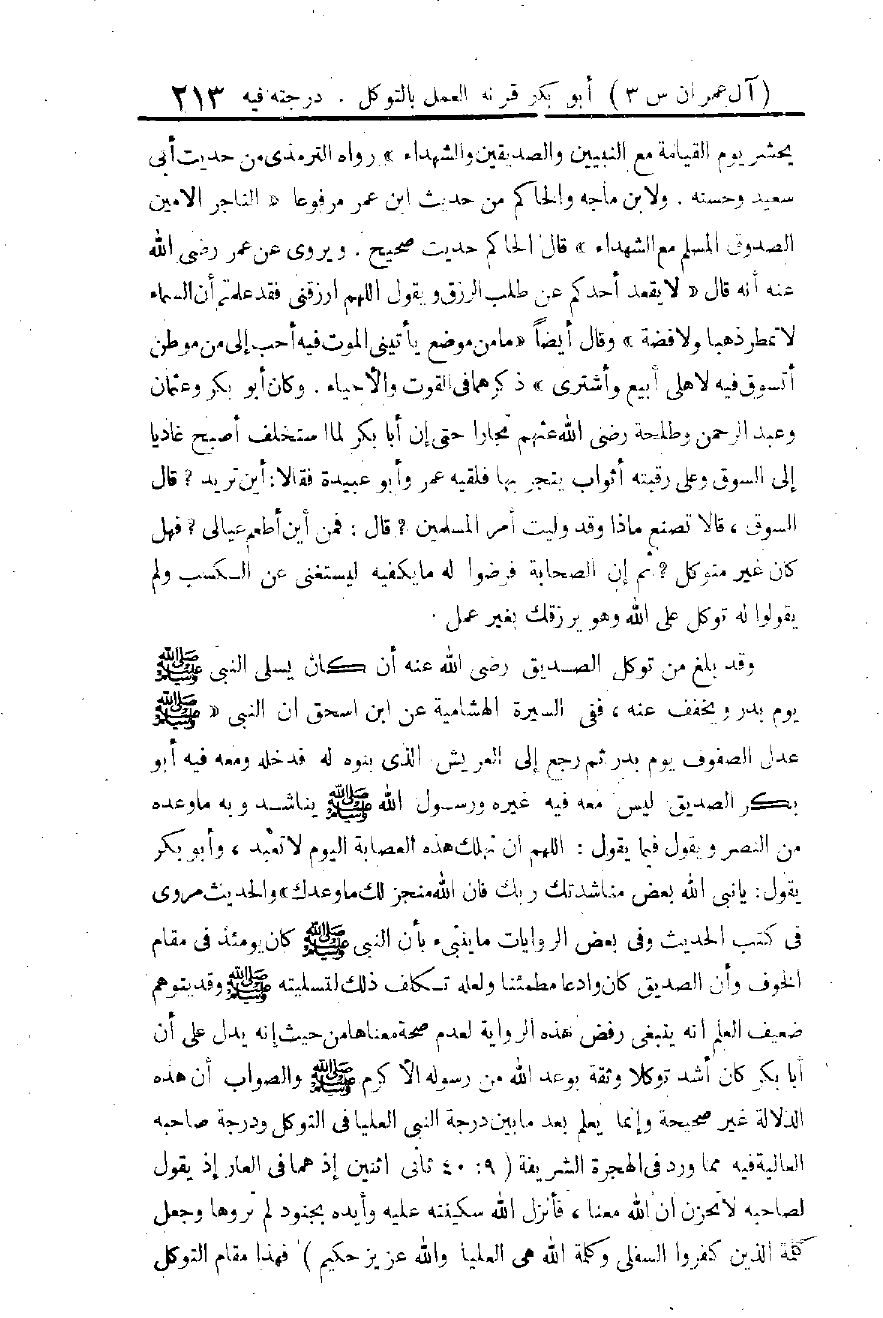 (آل عمران س ٣) أبو بكر قرنه العمل بالتوكل . درجته فيه ٢١٣
يحشر يوم القيامة مع النبيين والصديقين والشهداء » رواه الترمذى من حديث أبى
سعيد وحسنه . ولابن ماجه والحاكم من حديث ابن عمر مرفوعا « التاجر الامين
الصدوق المسلم مع الشهداء » قال الحاكم حديث صحيح . ويروى عن عمر رضى الله
عنه أنه قال « لا يقعد أحدكم عن طلب الرزق ويقول اللهم ارزقنى فقد علمتم أن السماء
لا تمطر ذهبا ولا فضة » وقال أيضاً « ما من موضع يأتينى الموت فيه أحب إلى من موطن
أتسوق فيه لاهلى أبيع وأشترى » ذكرهما فى القوت والأحياء . وكان أبو بكر وعثمان
وعبد الرحمن وطلحة رضى الله عنهم تجارا حتى إن أبا بكر لما استخلف أصبح غاديا
إلى السوق وعلى رقبته أثواب يتجر بها فلقيه عمر وأبو عبيدة فقالا: أين تريد ? قال
السوق ، قالا تصنع ماذا وقد وليت أمر المسلمين ? قال : فمن أين أطعم عيالى ? فهل
كان غير متوكل ? ثم إن الصحابة فرضوا له ما يكفيه ليستغنى عن الكسب ولم
يقولوا له توكل على الله وهو يرزقك بغير عمل .
وقد بلغ من توكل الصديق رضى الله عنه أن كان يسلى النبى ﷺ
يوم بدر ويخفف عنه ، ففى السيرة الهشامية عن ابن اسحق ان النبى « ﷺ
عدل الصفوف يوم بدر ثم رجع إلى العريش الذى بنوه له فدخله ومعه فيه أبو
بكر الصديق ليس معه فيه غيره ورسول الله ﷺ يناشد ربه ما وعده
من النصر ويقول فيما يقول : اللهم ان تهلك هذه العصابة اليوم لا تعبد ، وأبو بكر
يقول: يا نبى الله بعض مناشدتك ربك فان الله منجز لك ما وعدك » والحديث مروى
فى كتب الحديث وفى بعض الروايات ما ينبىء بأن النبى ﷺ كان يومئذ فى مقام
الخوف وأن الصديق كان وادعا مطمئنا ولعله تكلف ذلك لتسليته ﷺ وقد يتوهم
ضعيف العلم انه ينبغى رفض هذه الرواية لعدم صحة معناها من حيث إنه يدل على أن
أبا بكر كان أشد توكلا وثقة بوعد الله من رسوله الأكرم ﷺ والصواب أن هذه
الدلالة غير صحيحة وإنما يعلم بعد ما بين درجة النبى العليا فى التوكل ودرجة صاحبه
العالية فيه مما ورد فى الهجرة الشريفة ( ٩ : ٤٠ ثانى اثنين إذ هما فى الغار إذ يقول
لصاحبه لا تحزن ان الله معنا ، فأنزل الله سكينته عليه وأيده بجنود لم تروها وجعل
كلمة الذين كفروا السفلى وكلمة الله هى العليا والله عزيز حكيم ) فهذا مقام التوكل